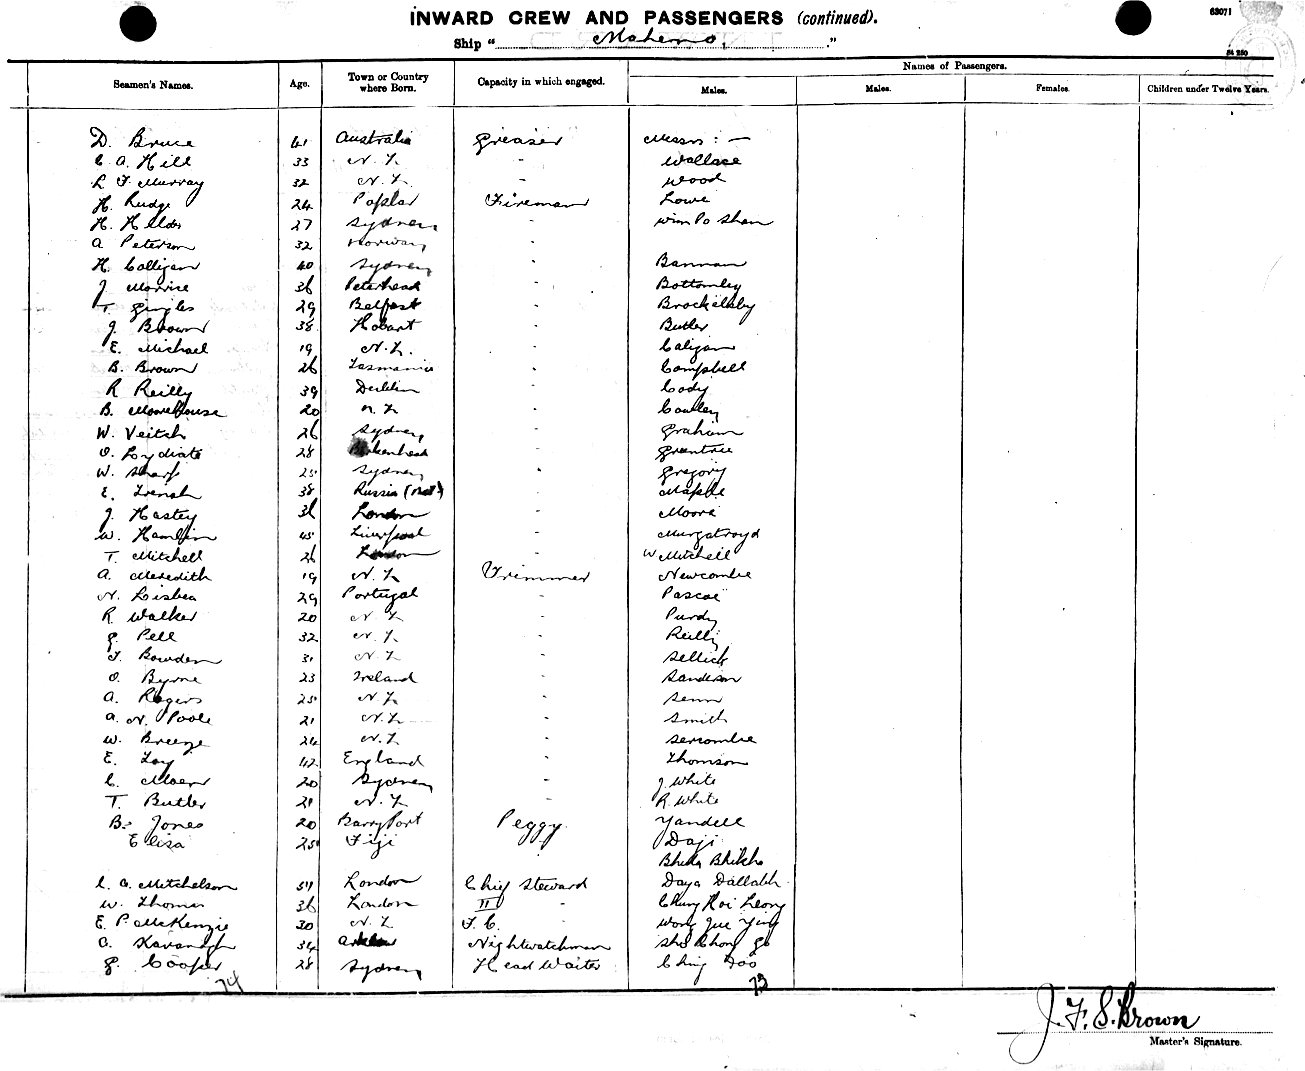 63071
INWARD CREW AND PASSENGERS (continued).
Ship "Maheno,"
54 250
Seamen's Names. Age. Town or Country where Born. Capacity in which engaged. Names of Passengers.
Males. Males. Females. Children under Twelve Years.
D. Bruce 41 Australia Greaser Messrs : —
C. A. Hill 33 N. Z. " Wallace
L. F. Murray 32 N. Z. " Wood
H. Rudge 24 Poplar Fireman Lowe
H. Helder 27 Sydney " Wm Po Shan
A Peterson 32 Norway "
H. Calligan 40 Sydney " Bannan
J. Morrice 36 Peterhead " Bottomley
T. Gingles 29 Belfast " Brockelsby
J. Brown 38 Hobart " Butler
E. Michael 19 N. Z. " Caligan
B. Brown 26 Tasmania " Campbell
R Reilly 39 Dublin " Cody
B. Moorehouse 20 N. Z " Cowley
W. Veitch 26 Sydney " Graham
O. Lydiate 28 Birkenhead " Greentree
W. Sharp 25 Sydney " Gregory
E. French 38 Russia " Maple
J. Hastey 36 London " Moore
W. Hamlin 45 Liverpool " Murgatroyd
T. Mitchell 26 London " W Mitchell
A. Meredith 19 N. Z Trimmer Newcombe
N. Lisbea 29 Portugal " Pascoe
R Walker 20 N Z " Purdy
G. Pell 32 N. Z. " Reilly
F. Bowden 31 N Z " Sellick
O. Byrne 23 Ireland " Sanderson
A. Rogers 25 N. Z " Senn
A. N. Poole 21 N. Z " Smith
W. Breeze 24 N. Z " Sercombe
E. Loy 42 England " Thomson
C. Moen 20 Sydney " J. White
T. Butler 21 N. Z " R. White
B. Jones 20 Barry Port Peggy Yandell
Elisa 25 Fiji Daji
Bhikha
C. A. Mitchelson 54 London Chief Steward Daya Dallabh
W. Thomas 36 London II " Chung Hoi Leong
E. P. McKenzie 30 N. Z F. C. " Wong Jue Ying
C. Kavanagh 34 Nightwatchman
G. Cooper 28 Sydney Head Waiter Ching Foo
74 73
J. F. S. Brown
Master's Signature.